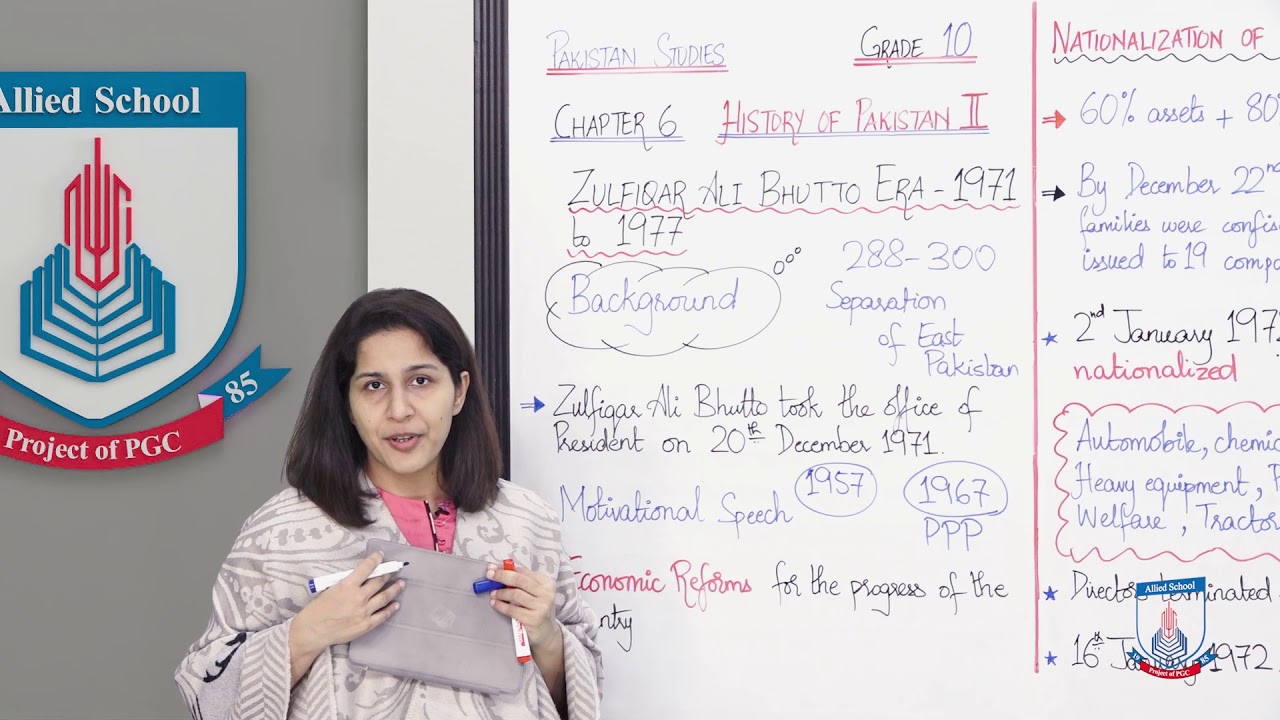 Allied School
85
Project of PGC
PAKISTAN STUDIES
GRADE 10
CHAPTER 6 HISTORY OF PAKISTAN II
ZULFIQAR ALI BHUTTO ERA - 1971
to 1977
Background
288-300
Separation
of East
Pakistan
Zulfiqar Ali Bhutto took the office of
President on 20th December 1971.
Motivational Speech
1957
1967
PPP
Economic Reforms for the progress of the
ntry
NATIONALIZATION OF
60% assets + 80
By December 22nd
families were confis
issued to 19 compa
2nd January 197
nationalized
Automobile, chemic
Heavy equipment,
Welfare, Tractor
Director terminated
16th January 1972
Allied School
85
Project of PGC